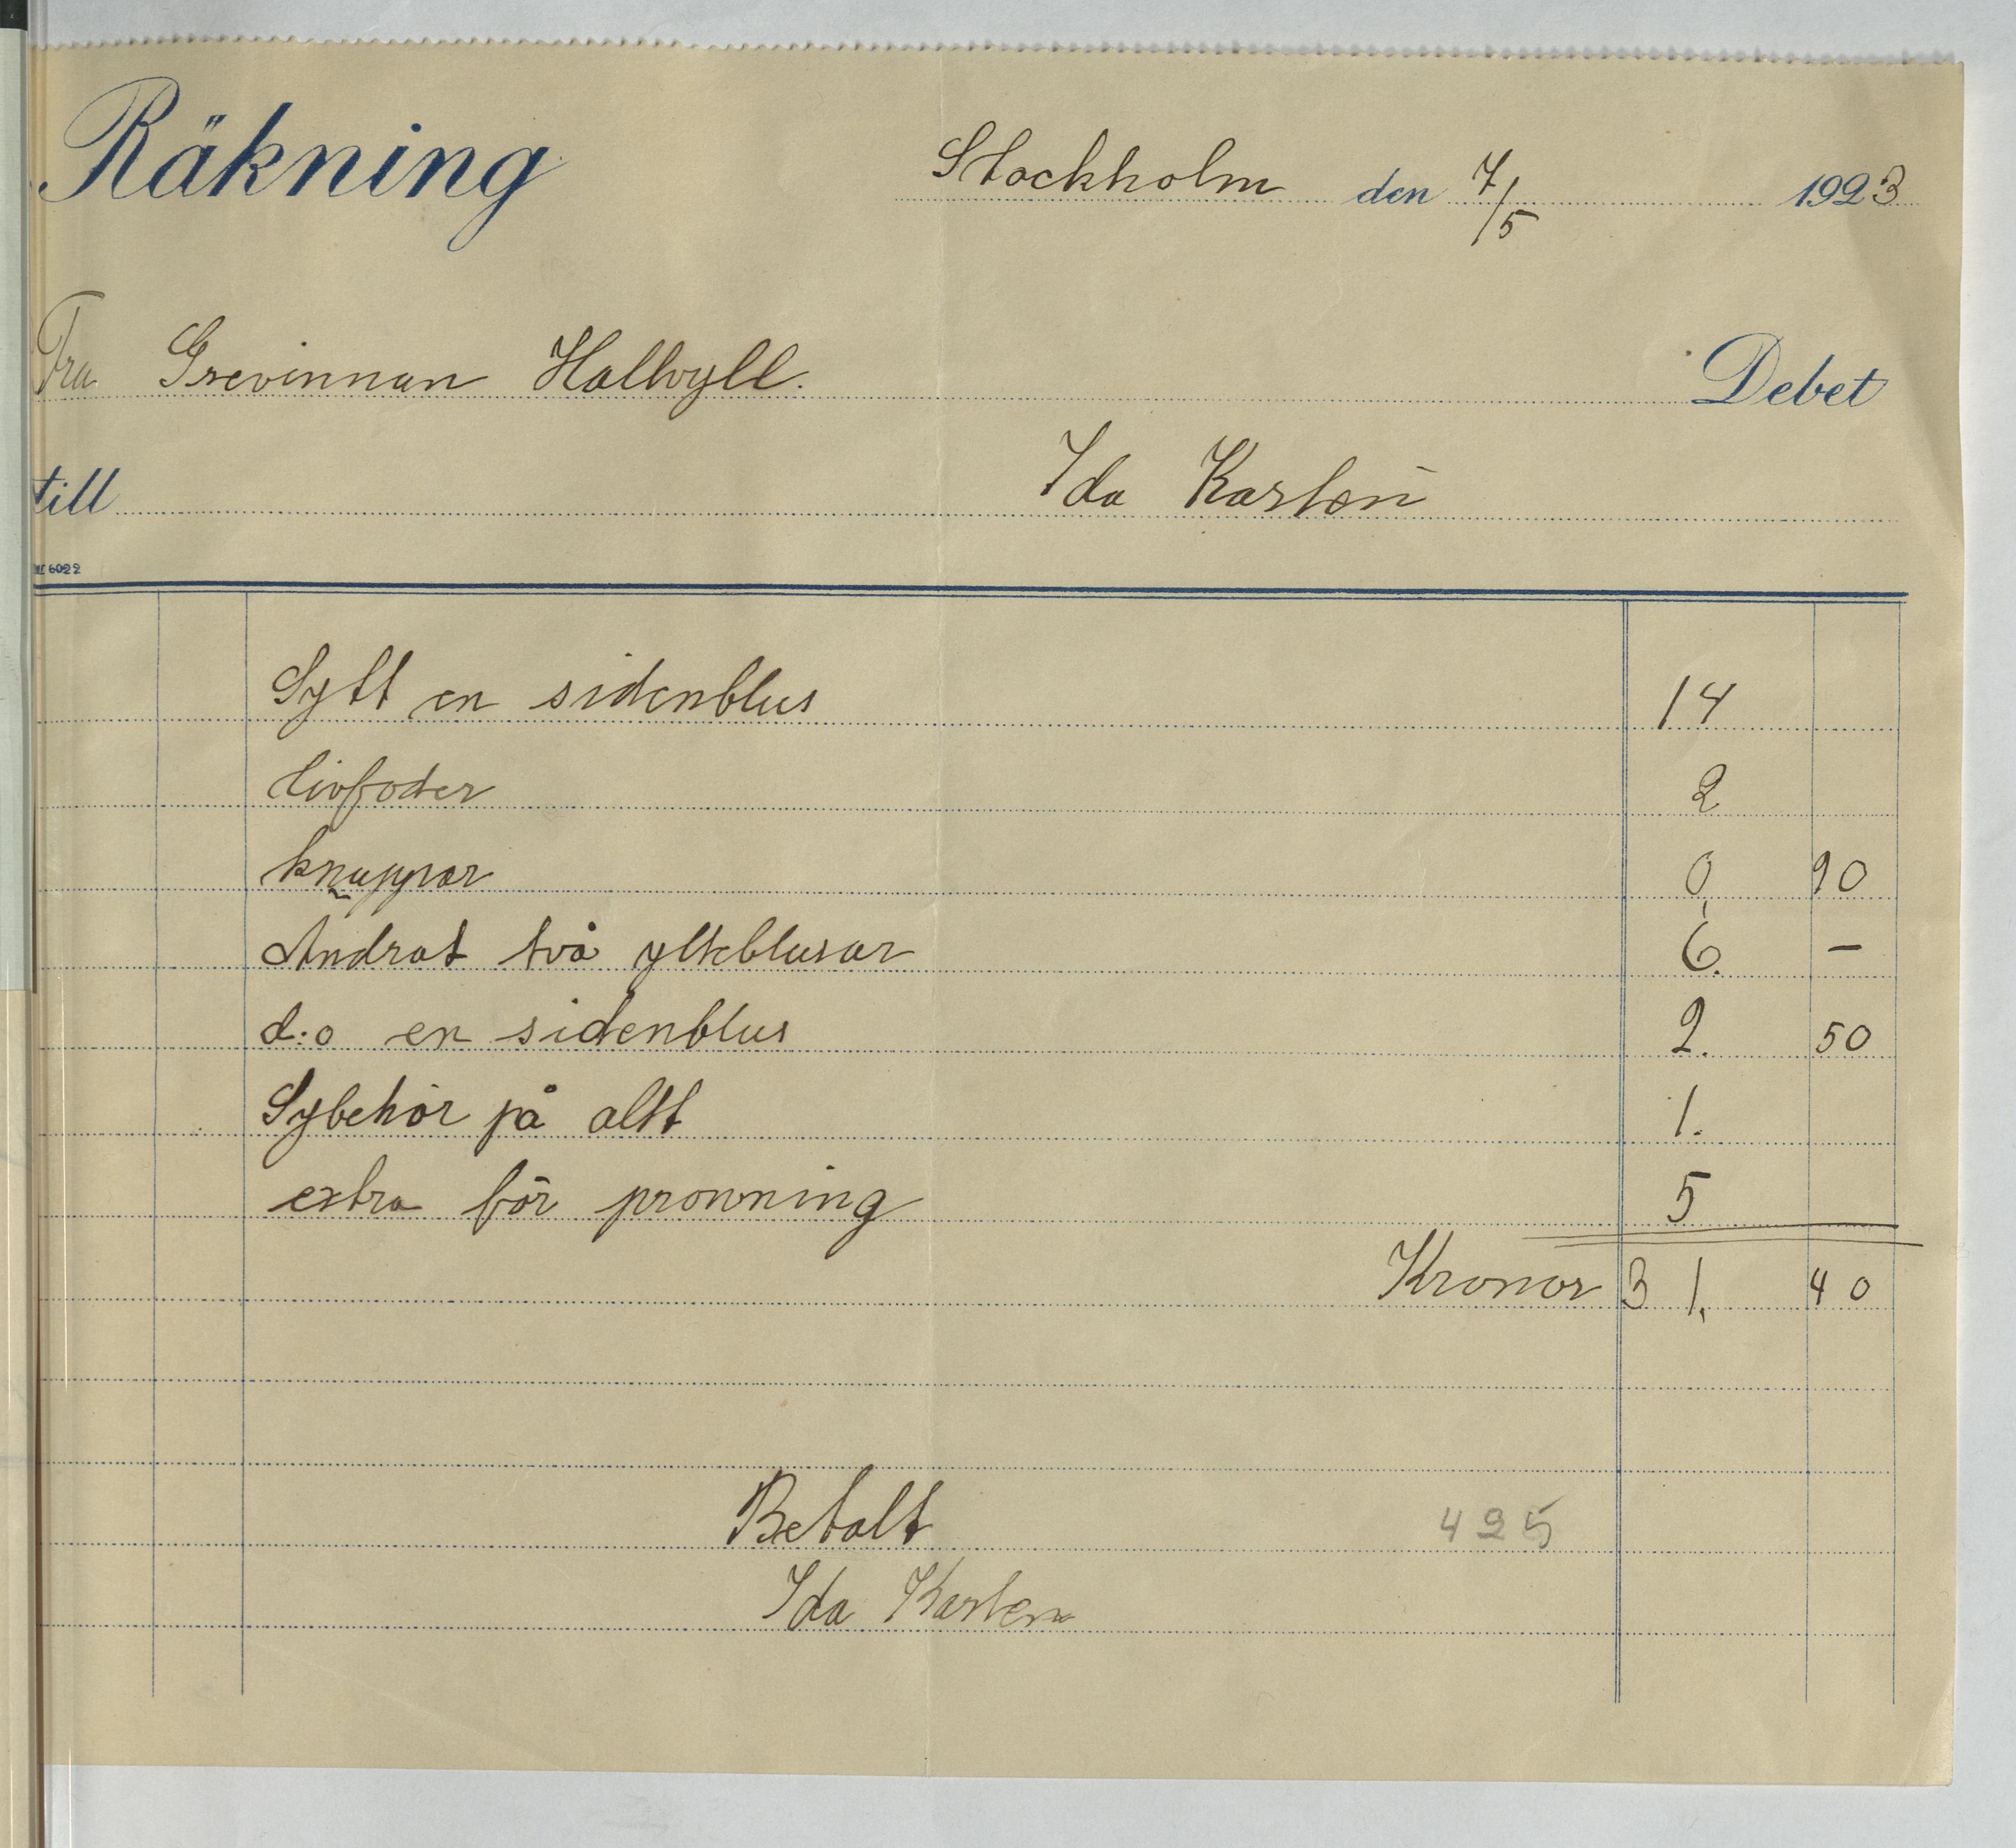 Räkning
Stockholm den 7/5 1923
Fru Grevinnan Hallvyll.
Debet
till Ida Karlén
6022
Sytt en sidenblus 14
livfoder 2
knappar 0, 90
Andrat två ylleblusar 6. –
d:o en sidenblus 2. 50
Sybehör på allt 1.
extra för provning 5
Kronor 31. 40
Betalt
425
Ida Karlen